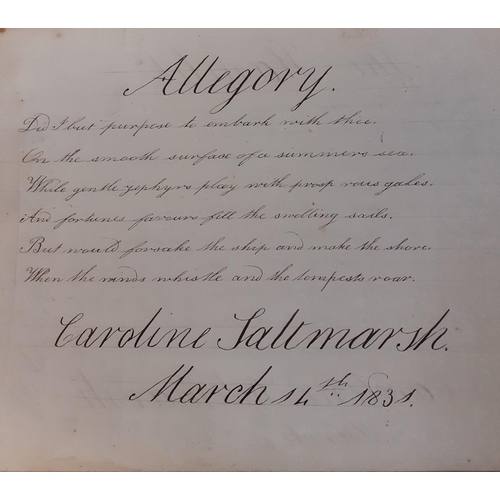 Allegory.
Did I but purpose to embark with thee.
On the smooth surface of a summers sea.
While gentle zephyrs play with prosp'rous gales.
And fortunes favours fill the swelling sails.
But would forsake the ship and make the shore.
When the winds whistle and the tempests roar.
Caroline Saltmarsh.
March 14th 1831.